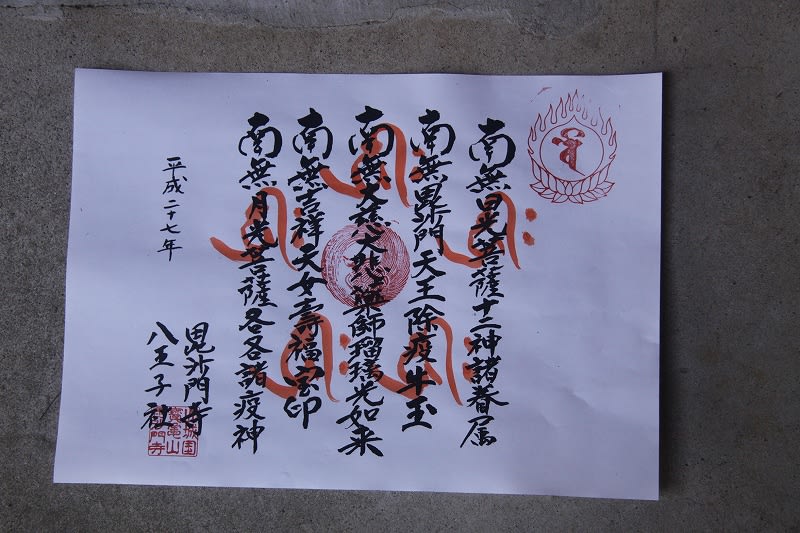 南無日光菩薩十二神諸眷属
南無毘沙門天王除疫牛玉
南無大慈大悲薬師瑠璃光如来
南無吉祥天女壽福宝印
南無月光菩薩各各諸疫神
平成二十七年
毘沙門寺
八王子社